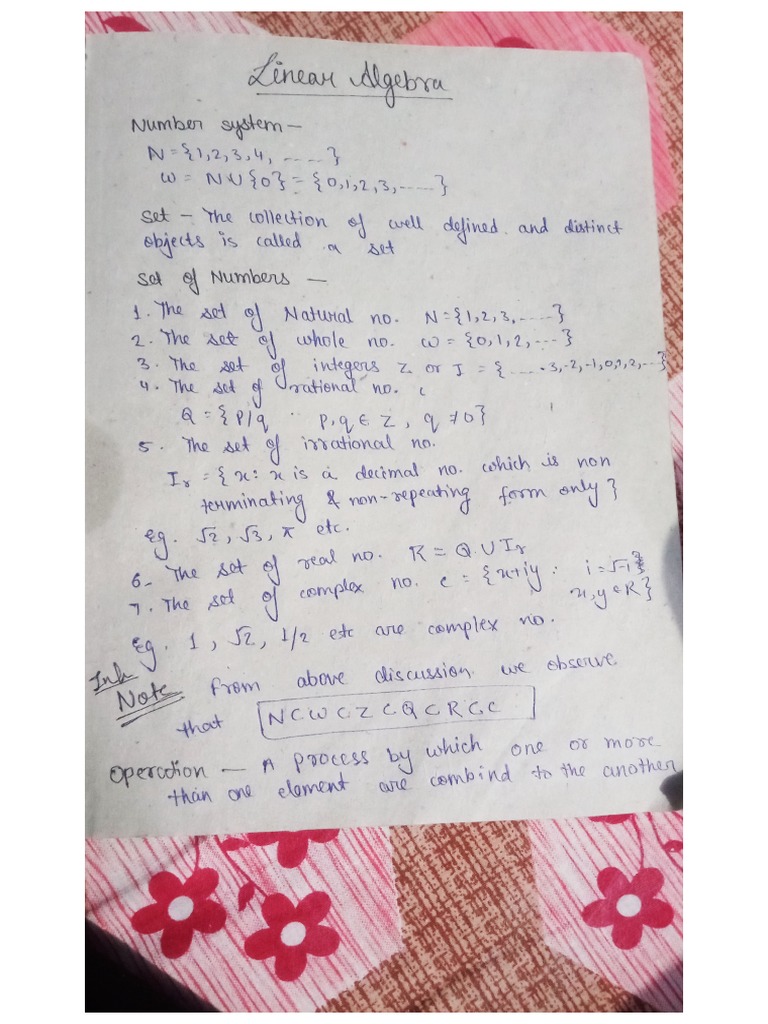 Linear Algebra
Number system -
N = {1, 2, 3, 4, ......}
W = N ∪ {0} = {0, 1, 2, 3, ......}
Set - The collection of well defined and distinct
objects is called a set
Set of Numbers -
1. The set of Natural no. N = {1, 2, 3, .....}
2. The set of whole no. W = {0, 1, 2, ...}
3. The set of integers Z or I = {.....-3, -2, -1, 0, 1, 2, ...}
4. The set of rational no.
Q = {P/q p, q ∈ Z, q ≠ 0}
5. The set of irrational no.
Ir = {x : x is a decimal no. which is non
terminating & non-repeating form only}
Eg. √2, √3, π etc.
6- The set of real no. R = Q ∪ Ir
7. The set of complex no. C = {x+iy : i = √-1
x, y ∈ R}
Eg. 1, √2, 1/2 etc are complex no.
Note From above discussion we observe
that N ⊂ W ⊂ Z ⊂ Q ⊂ R ⊂ C
Operation - A process by which one or more
than one element are combind to the another